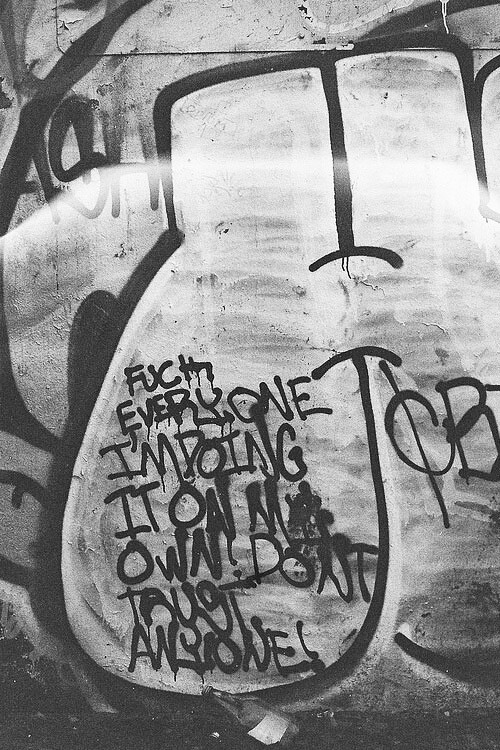 ASH
FUCK
EVERYONE
I'M DOING
IT ON MY
OWN! DON'T
TRUST
ANYONE!